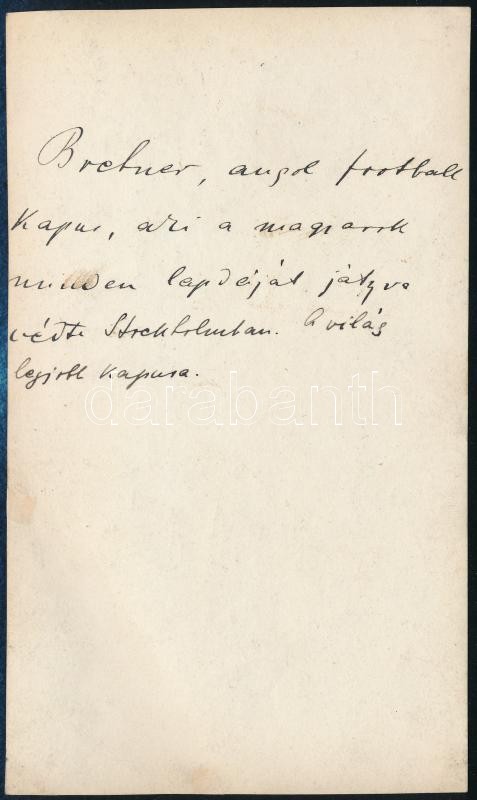 Bretner, angol football
Kapus, aki a magyarok
minden lapdáját játszva
védte Stockholmban. A világ
legjobb kapusa.
darabanth